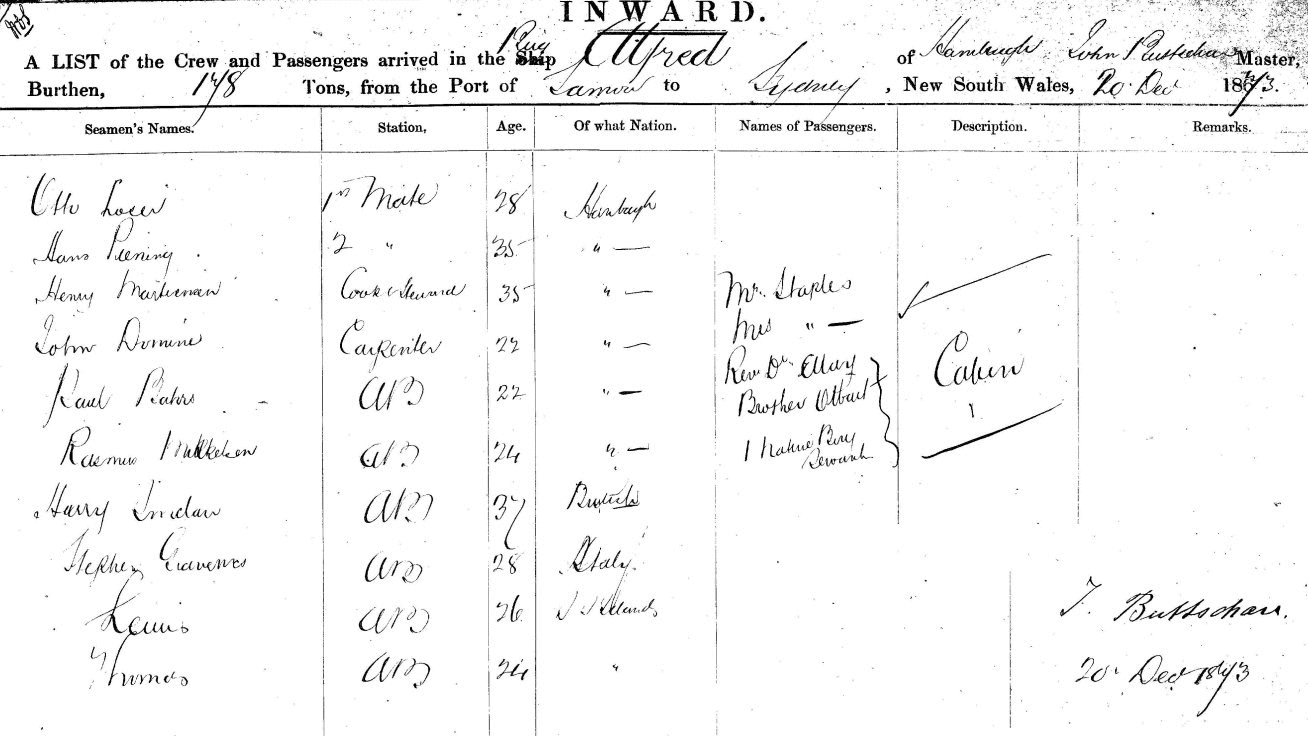 INWARD.
A LIST of the Crew and Passengers arrived in the Ship Brig Alfred of Hamburgh John Master,
Burthen, 178 Tons, from the Port of Samoa to Sydney, New South Wales, 20 Dec 1873.
Seamen's Names. Station, Age. Of what Nation. Names of Passengers. Description. Remarks.
Otto 1st Mate 28 Hamburgh
Hans Piening 2 " 35 " —
Henry Cook & Steward 35 " — Mr. Staples
Mrs " —
John Domine Carpenter 22 " —
Rev. Dr. Elloy Cabin
Paul Bahrs AB 22 " — Brother
Rasmus Mikkelsen AB 24 " — 1 Native Boy
Servant
Harry AB 37 British
Stephen AB 28 Italy.
Louis AB 26 S S Islands J. Buttschau.
Thomas AB 24 " 20 Dec 1873